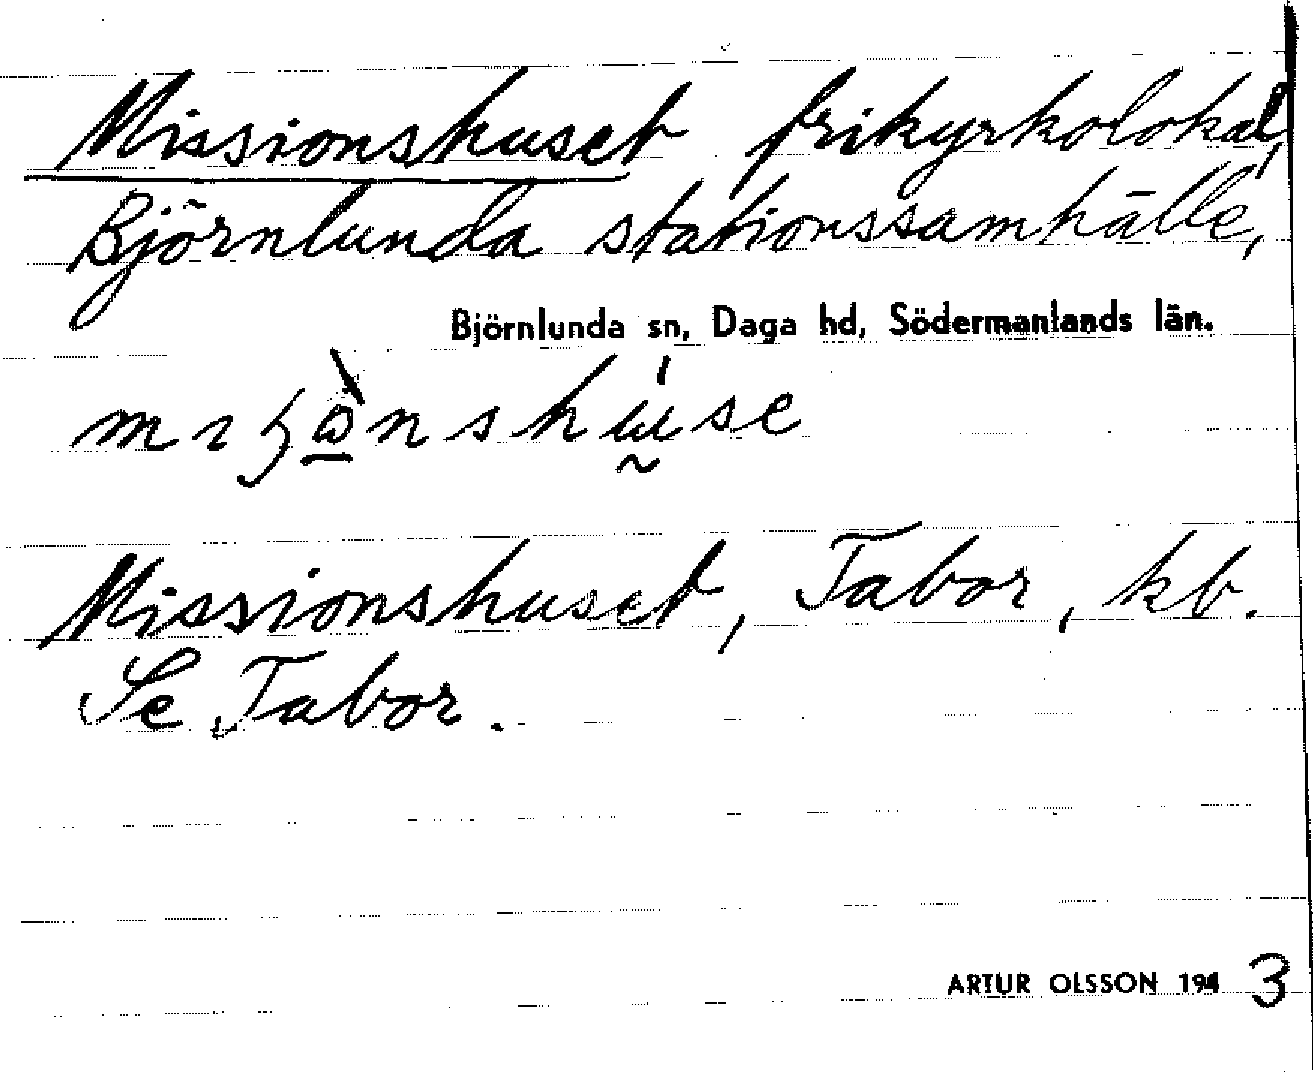 Missionshuset frikyrkolokal,
Björnlunda stationssamhälle,
Björnlunda sn, Daga hd, Södermanlands län.
Missionshuset, Tabor, kb.
Se Tabor.
ARTUR OLSSON 1943